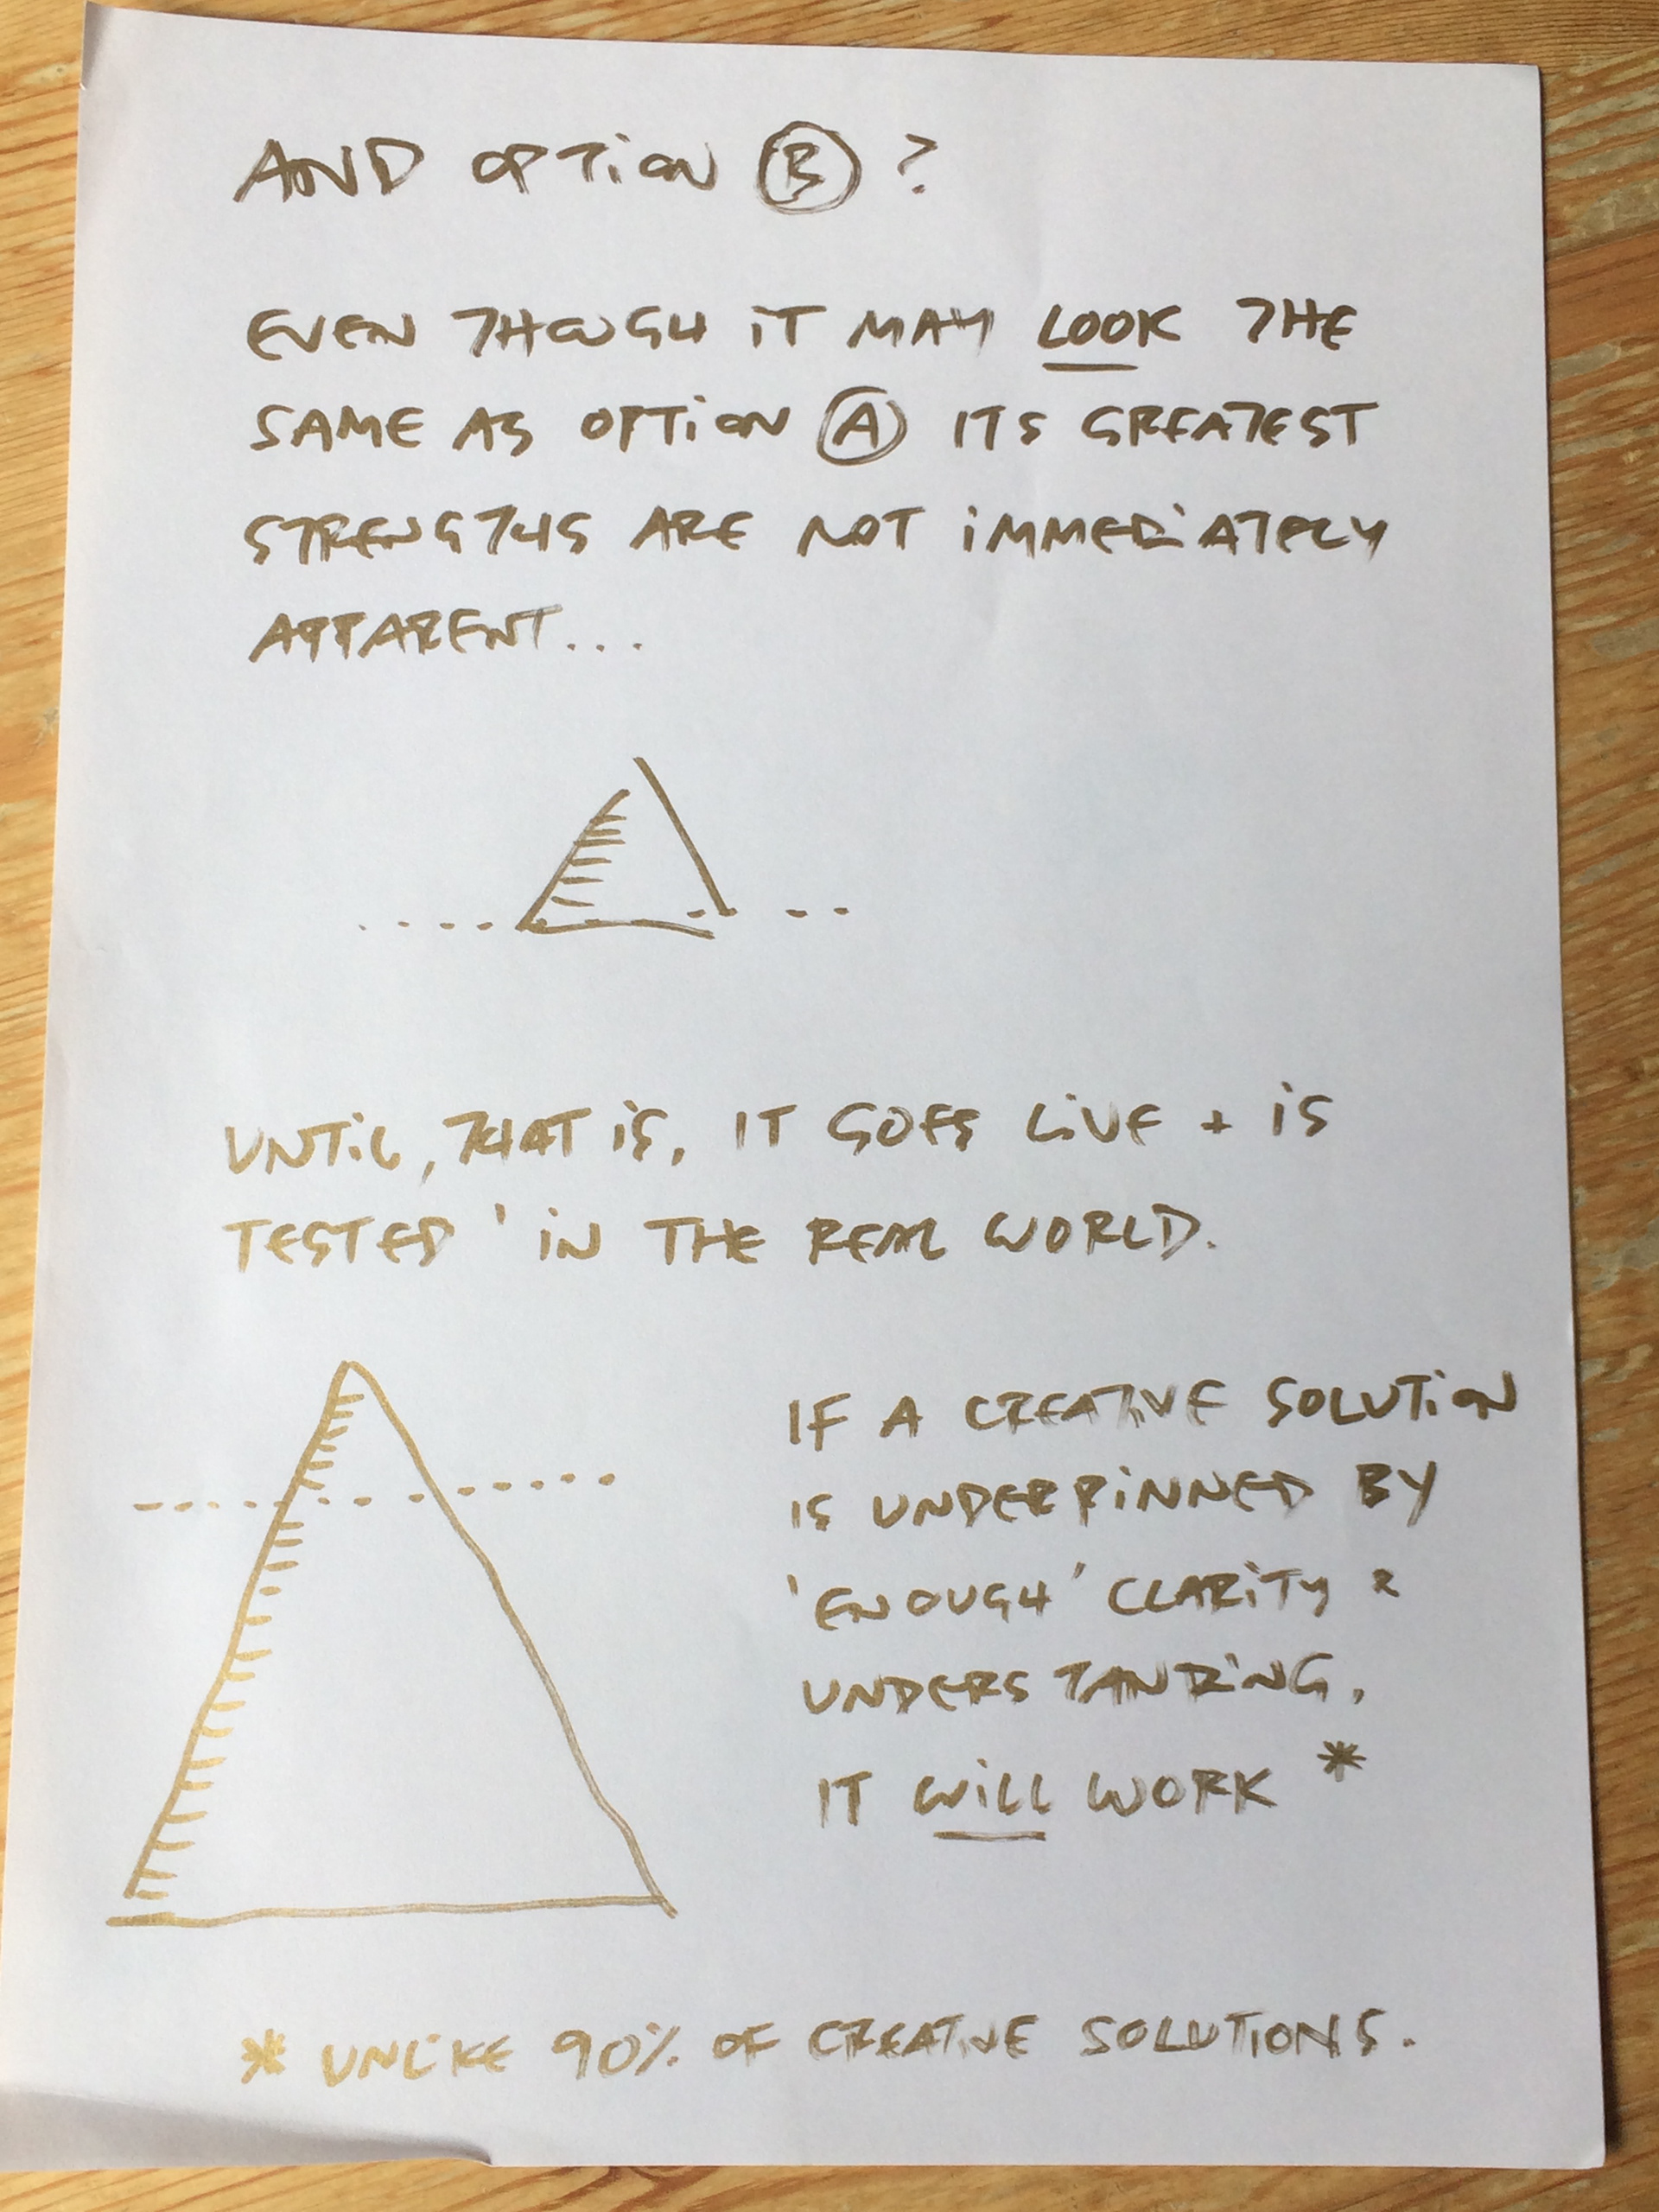 AND OPTION B ?
EVEN THOUGH IT MAY LOOK THE
SAME AS OPTION A ITS GREATEST
STRENGTHS ARE NOT IMMEDIATELY
APPARENT...
UNTIL, THAT IS, IT GOES LIVE + IS
TESTED ' IN THE REAL WORLD.
IF A CREATIVE SOLUTION
IS UNDERPINNED BY
'ENOUGH' CLARITY &
UNDERSTANDING,
IT WILL WORK *
* UNLIKE 90% OF CREATIVE SOLUTIONS.